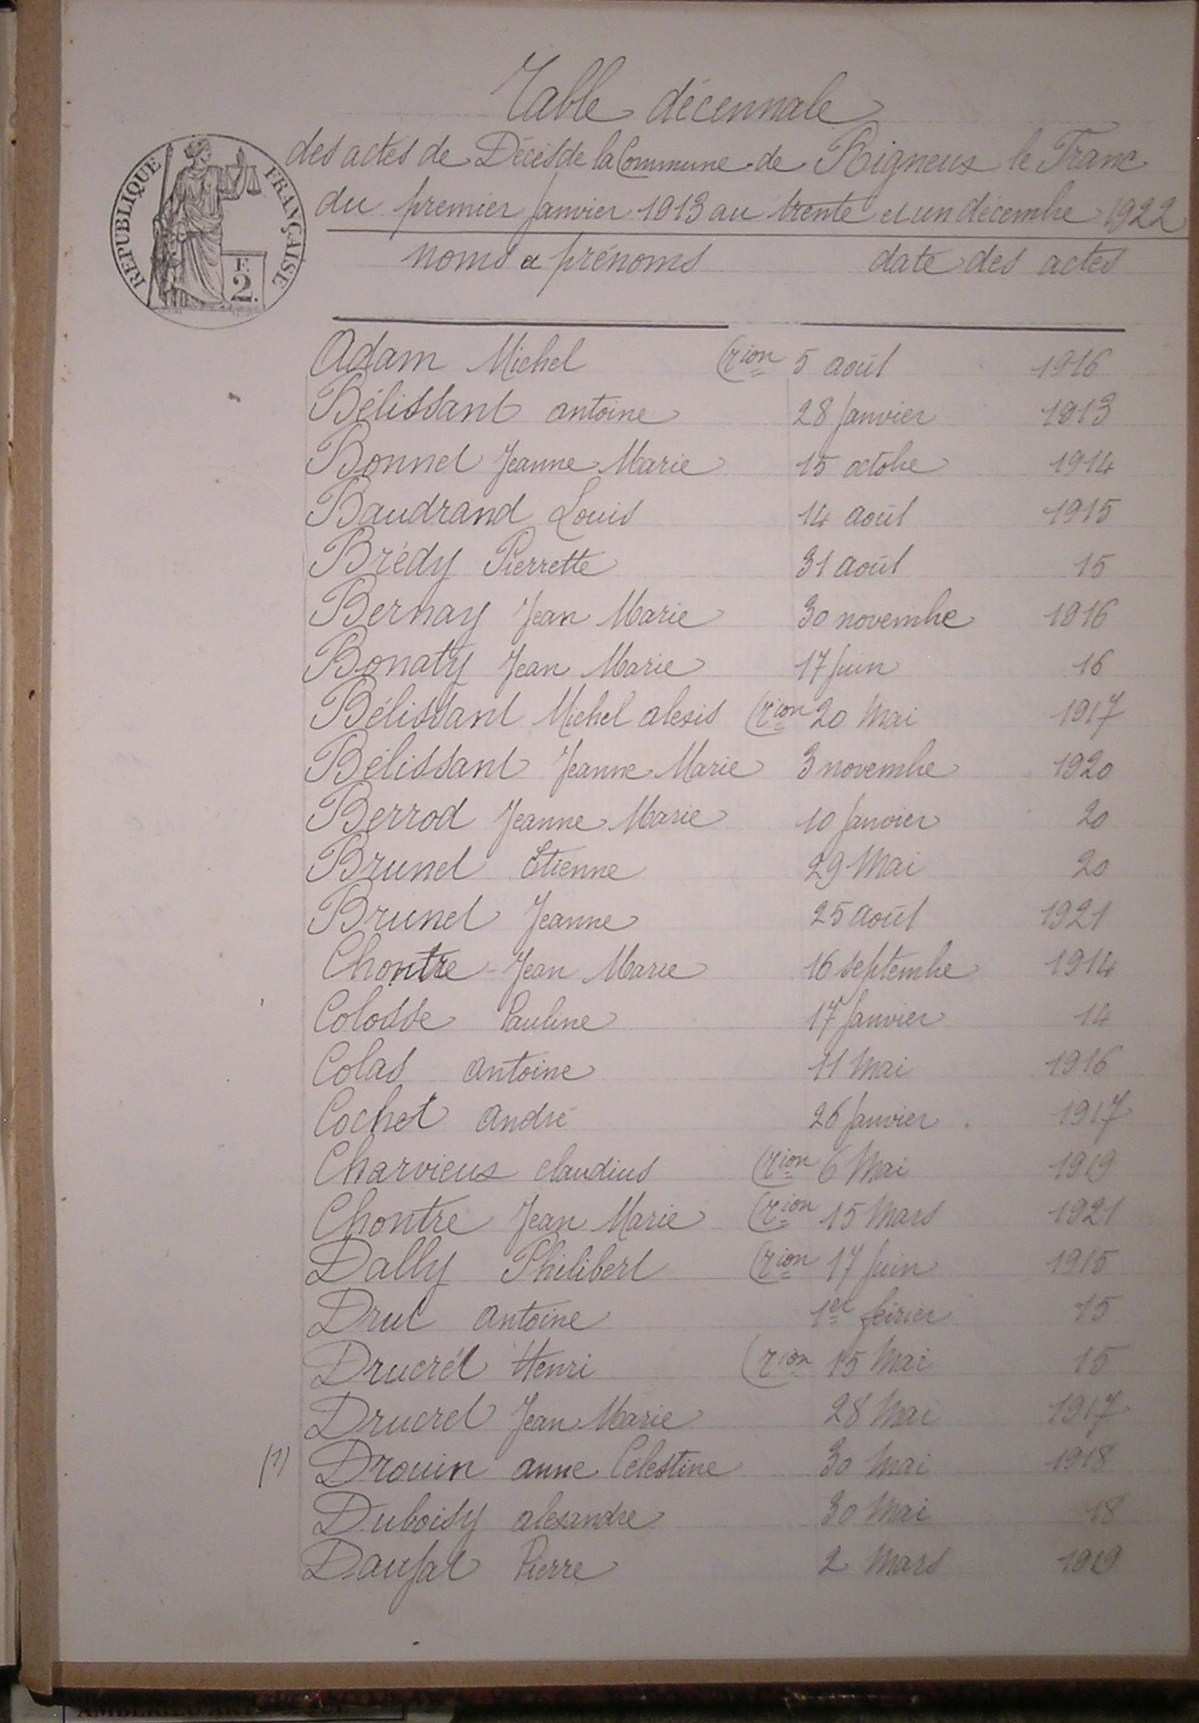 Table décennale
des actes de Décès de la Commune de Rigneux le Franc
du premier Janvier 1913 au trente et un décembre 1922
RÉPUBLIQUE FRANÇAISE
F.
2.
noms et prénoms date des actes
Adam Michel (Trion 5 août 1916
Bélissant antoine 28 Janvier 1913
Bonnet Jeanne Marie 15 octobre 1914
Baudrand Louis 14 août 1915
Brédy Pierrette 31 août 15
Bernay Jean Marie 30 novembre 1916
Bonaty Jean Marie 17 Juin 16
Bélissant Michel alexis (Trion 20 Mai 1917
Bélissant Jeanne Marie 3 novembre 1920
Berrod Jeanne Marie 10 Janvier 20
Brunet Etienne 29 Mai 20
Brunet Jeanne 25 août 1921
Chontre Jean Marie 16 septembre 1914
Colosse Pauline 17 Janvier 14
Colas antoine 11 Mai 1916
Cochet andré 26 Janvier 1917
Charvieux claudius (Trion 6 Mai 1919
Chontre Jean Marie (Trion 15 Mars 1921
Dally Philibert (Trion 17 Juin 1915
Drut antoine 1er février 15
Drucrét Henri (Trion 15 Mai 15
Drucret Jean Marie 28 Mai 1917
(1) Drouin anne Célestine 30 Mai 1918
Duboisy alexandre 30 Mai 18
Daujat Pierre 2 Mars 1919